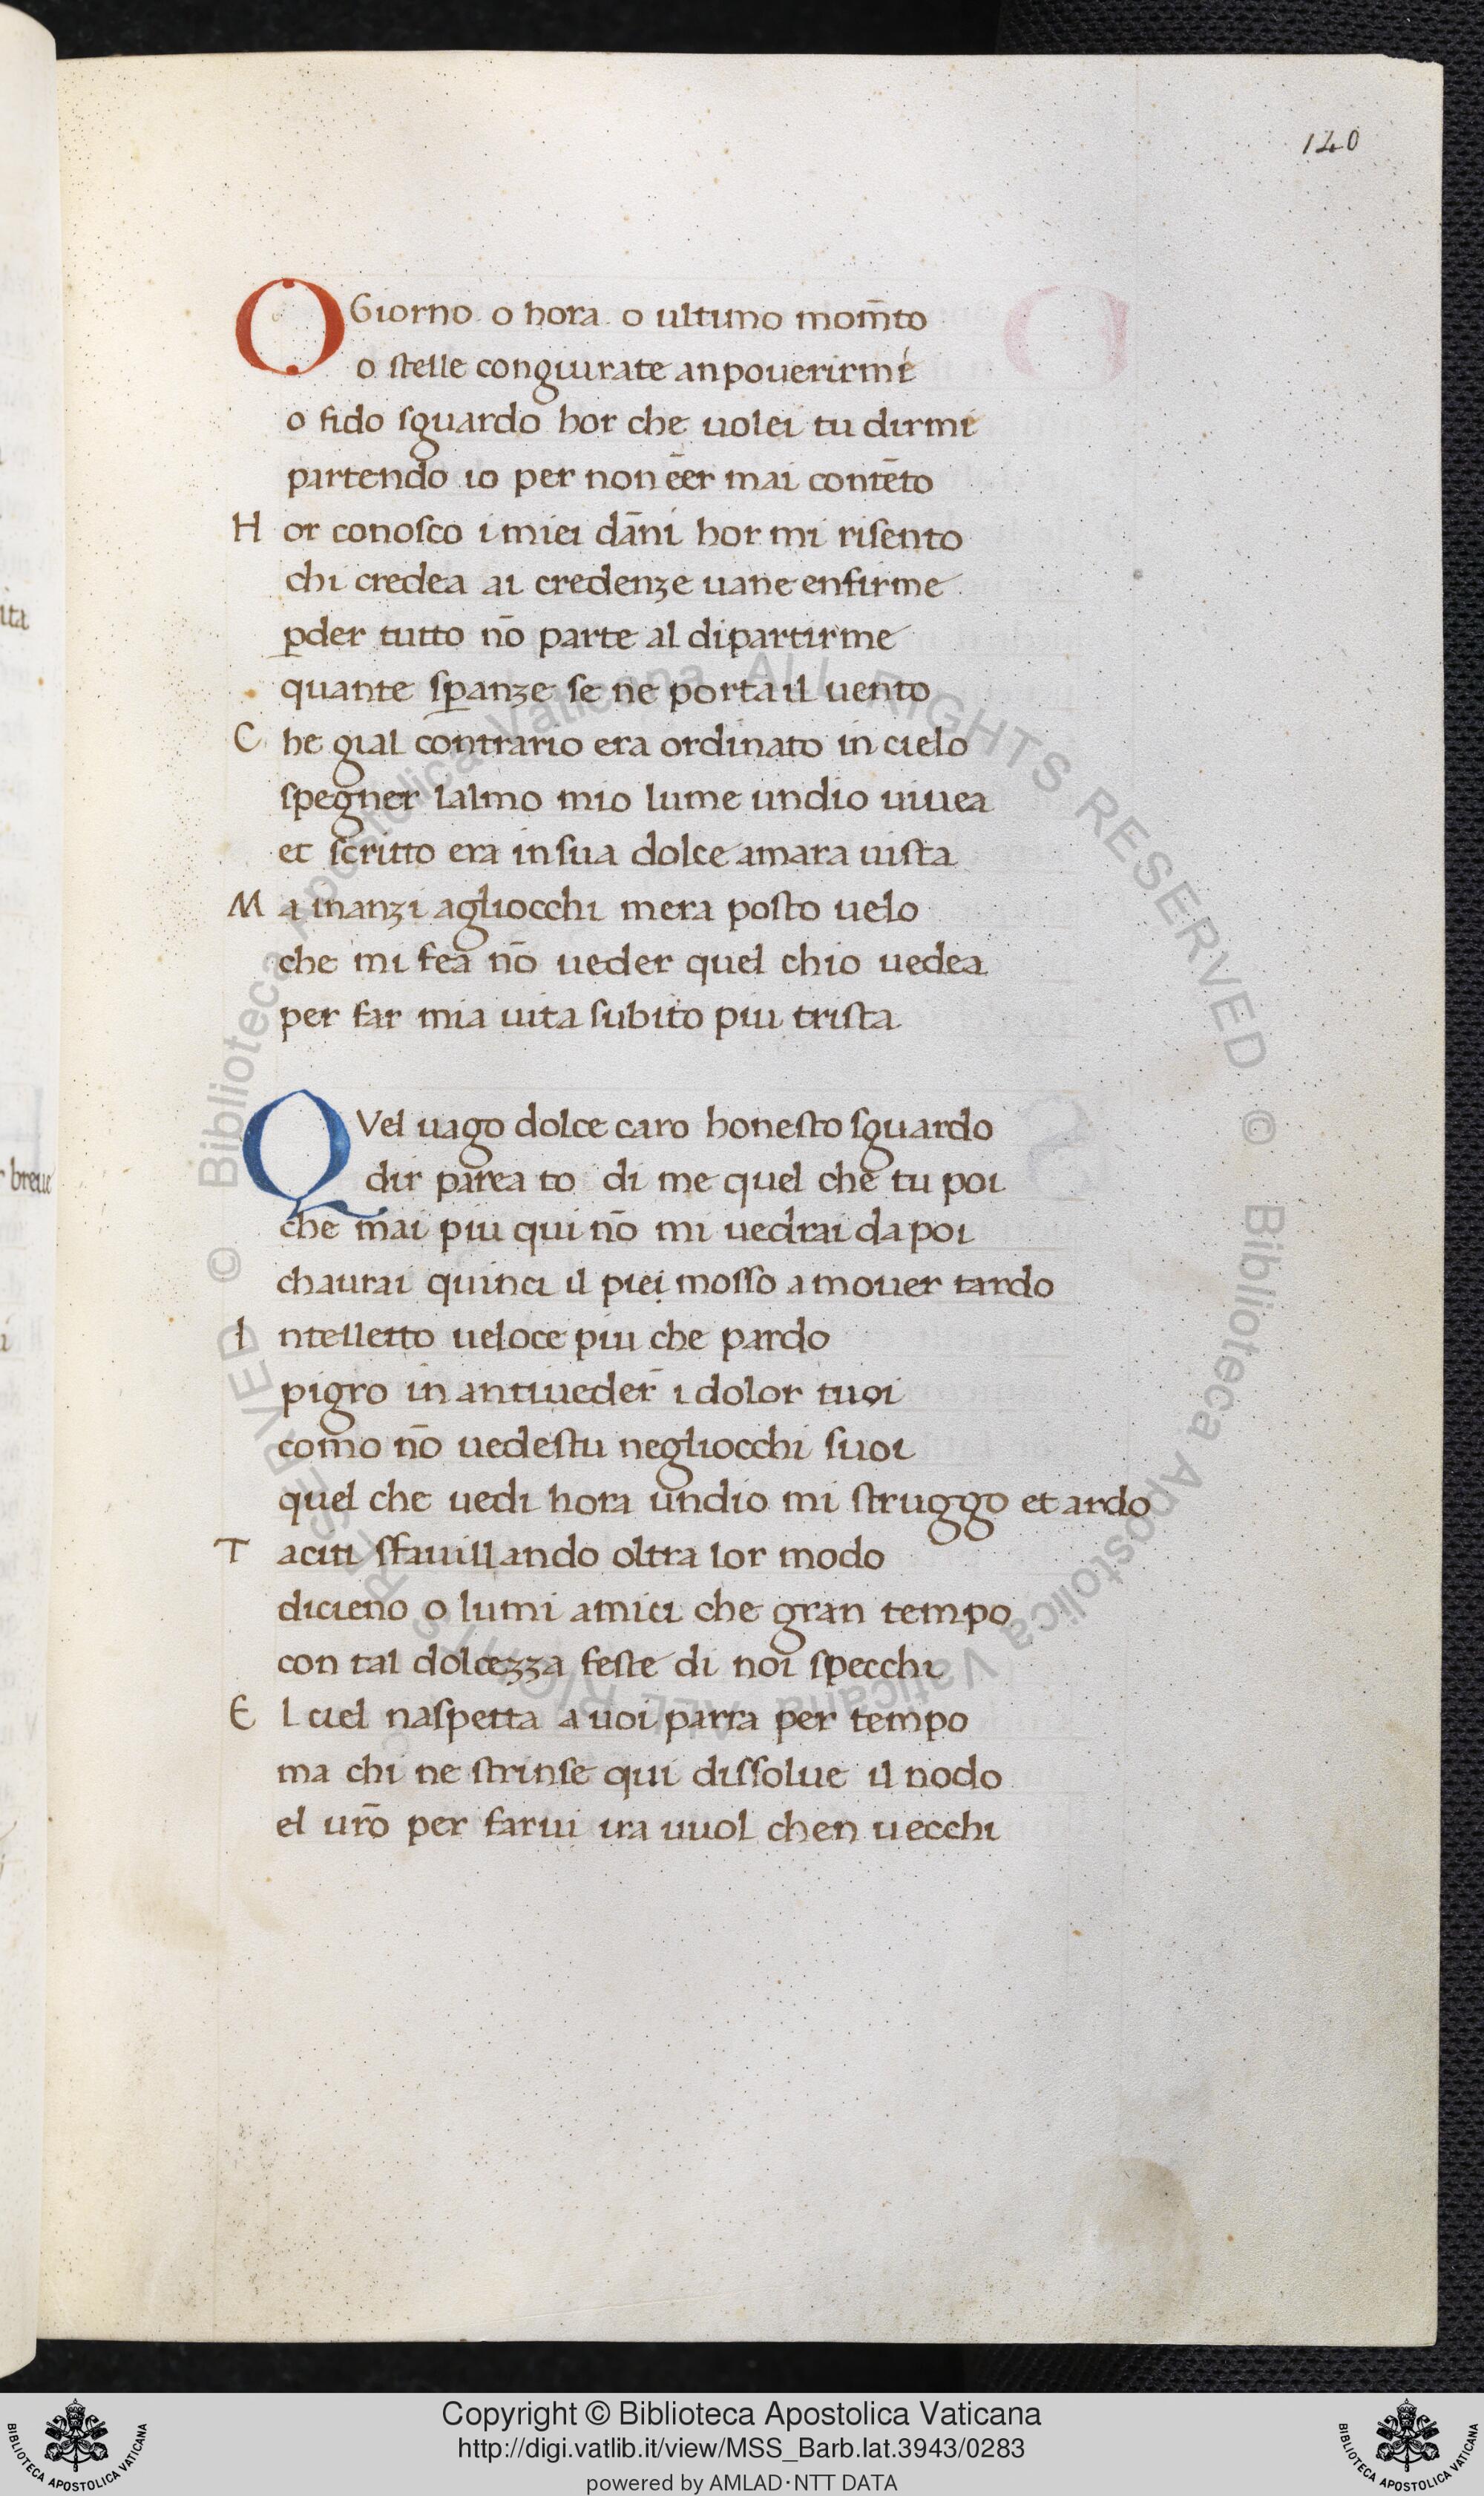 140
O Giorno o hora o ultimo mom̄to
o stelle congiurate anpouerirme
o fido sguardo hor che uolei tu dirmi
partendo io per non ēer mai contēto
H or conosco i miei dān̄i hor mi risento
chi credea ai credenze uane enfirme
ꝑder tutto nō parte al dipartirme
quante sꝑanze se ne porta il uento
C he gial contrario era ordinato in cielo
spegner lalmo mio lume undio uiuea
et scritto era in sua dolce amara uista
M a inanzi agliocchi mera posto uelo
che mi fea nō ueder quel chio uedea
per far mia uita subito piu trista
Q Vel uago dolce caro honesto sguardo
dir parea to di me quel che tu poi
che mai piu qui nō mi uedrai da poi
chaurai quinci il piei mosso a mouer tardo
I ntelletto ueloce piu che pardo
pigro in antiueder̄ i dolor tuoi
como nō uedestu negliocchi suoi
quel che uedi hora undio mi struggo et ardo
T aciti sfauillando oltra lor modo
dicieno o lumi amici che gran tempo
con tal dolcezza feste di noi specchi
E l ciel naspetta a uoi parra per tempo
ma chi ne strinse qui dissolue il nodo
el ur̄o per farui ira uuol chen uecchi
ita
r breue
© Biblioteca Apostolica Vaticana ALL RIGHTS RESERVED
© Biblioteca Apostolica Vaticana ALL RIGHTS RESERVED
Copyright © Biblioteca Apostolica Vaticana
http://digi.vatlib.it/view/MSS_Barb.lat.3943/0283
powered by AMLAD·NTT DATA
BIBLIOTECA APOSTOLICA VATICANA
BIBLIOTECA APOSTOLICA VATICANA